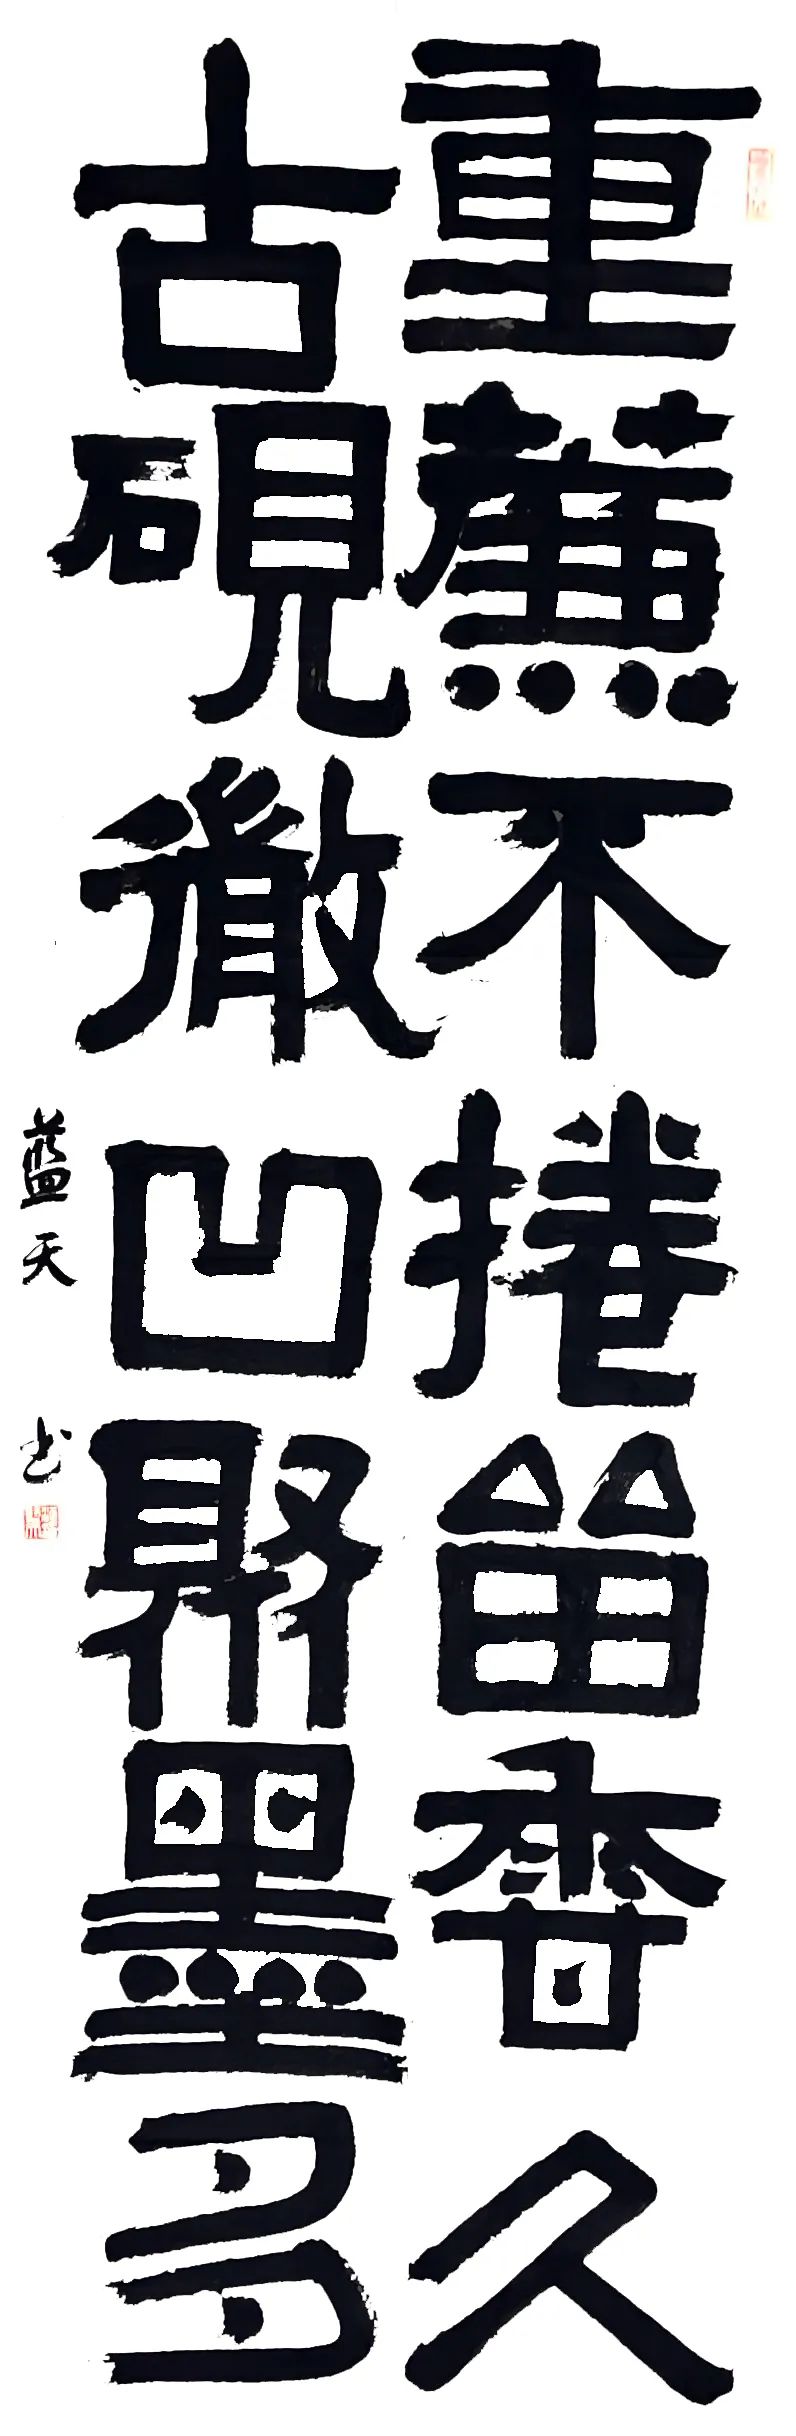 重簾不捲留香久
古硯微凹聚墨多
藍天书